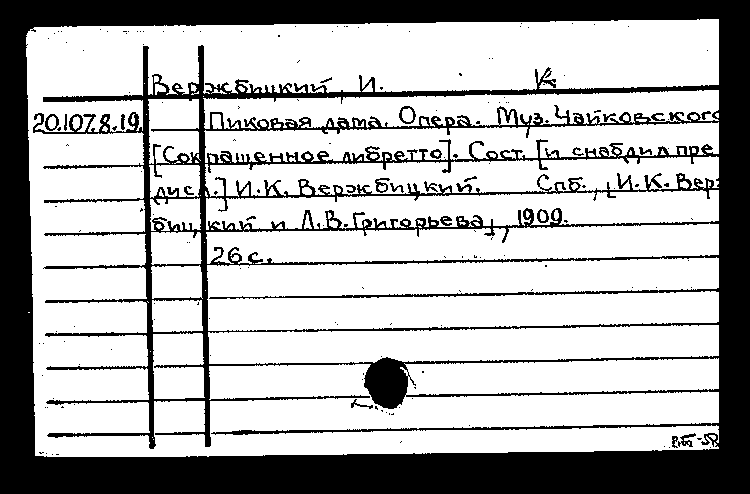 Вержбицкий, И. К.
20.107.8.19. Пиковая дама. Опера. Муз. Чайковского
[Сокращенное либретто]. Сост. [и снабдил пре
дисл.] И.К. Вержбицкий. Спб., [И.К. Верж
бицкий и Л.В. Григорьева], 1909.
26 с.